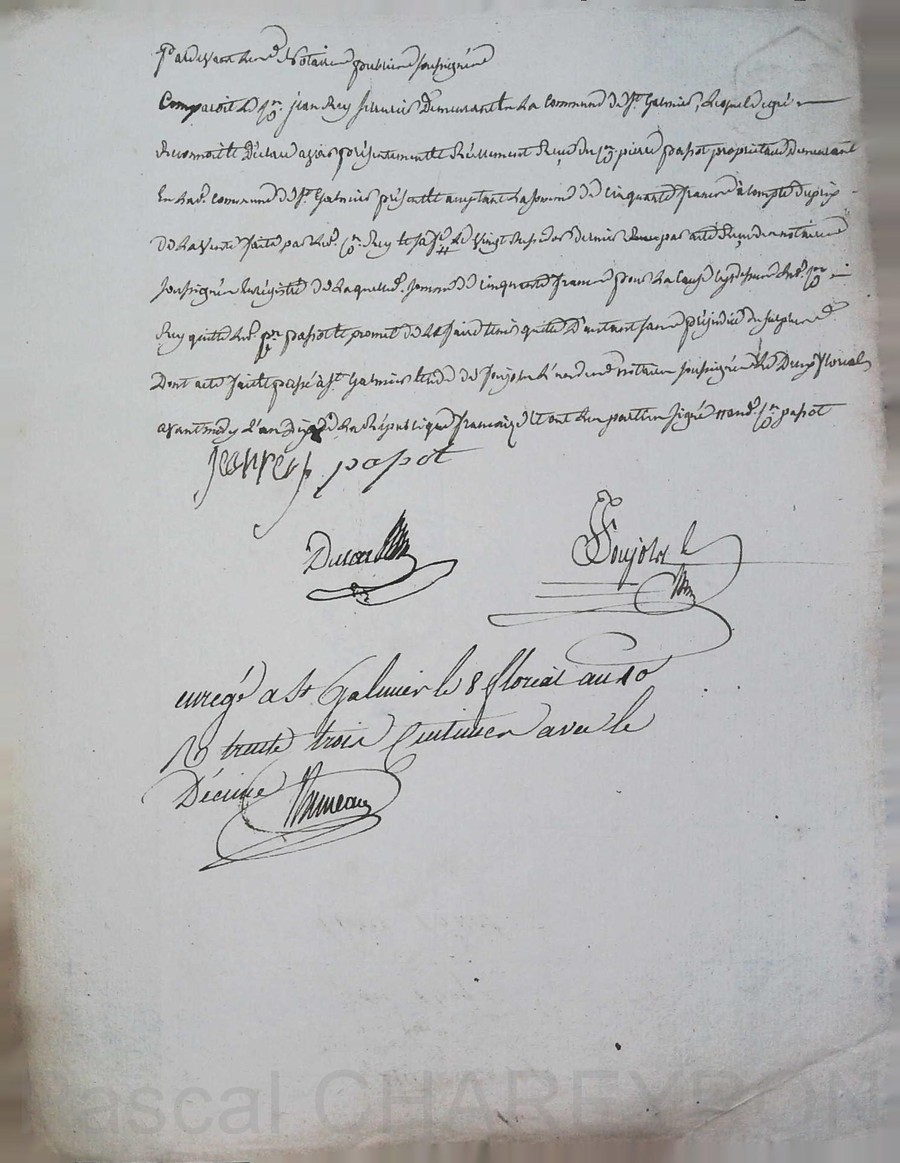 Pardevant les Notaires publics soussignés
Comparoit le Sr. jean Rey serrurier Demeurant En La commune de St. Galmier, Lequel de gré
Reconnoit et Déclare avoir présentement et Réellement Reçu du Sr. pierre papot propriétaire demeurant
En lad. commune de St. Galmier présent et acceptant La somme de cinquante francs à compte du prix
de La vente faite par led. Sr. Rey le dernier par acte Reçu des notaires
soussignés Enregistré de Laquelle d. somme de cinquante francs pour La cause cy dessus led. Sr.
Rey quitte led. Sr. papot et promet de Le faire tenir quitte D'autant sans préjudice du surplus
Dont acte fait et passé à St. Galmier Etude de soujolz L'un des notaires soussignés Le Deux floreal
avant midy L'an Dix de La République française Et ont Les parties signé
jean rey papot
Soujolz
enregé a St Galmier le 8 floreal an 10
R trente trois Centimes avec le
Décime
Pascal CHAREYRON